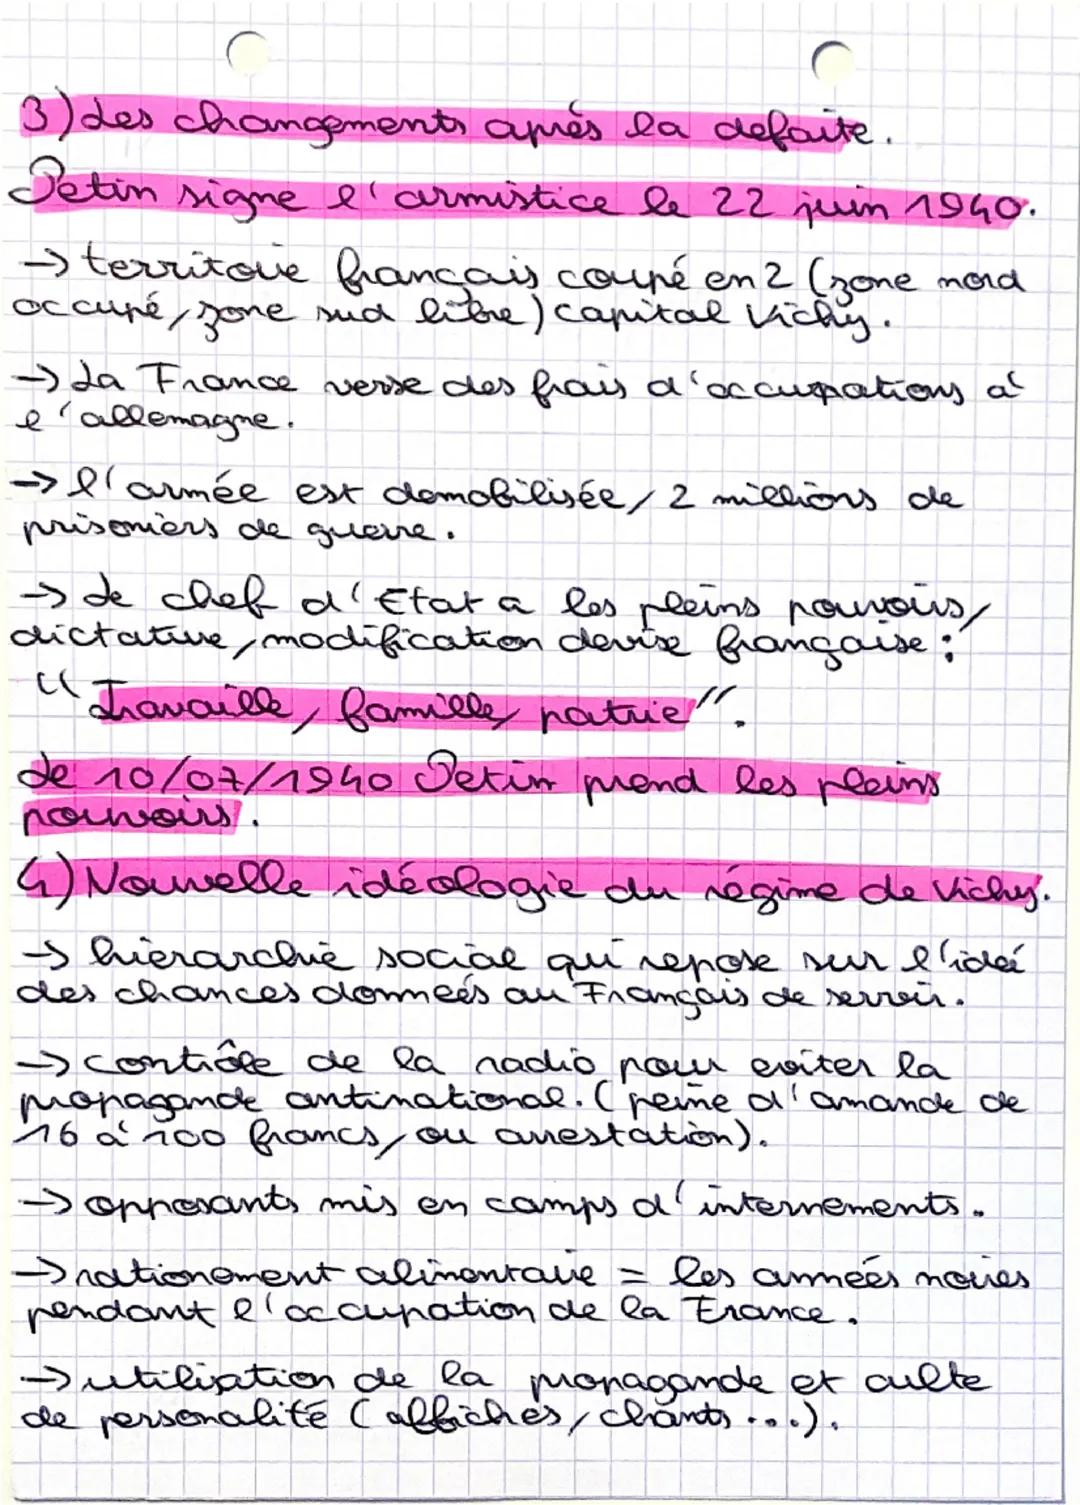 3) Les changements après la defaite.
Petin signe l'armistice le 22 juin 1940.
→ territoire français coupé en 2 (zone nord
occupé, zone sud libre) capital Vichy.
→ La France verse des frais d'occupations à
l'allemagne.
→ l'armée est demobilisée, 2 millions de
prisoniers de guerre.
→ Le chef d'Etat a les pleins pouvoirs,
dictature, modification devise française :
"Travaille, famille, patrie".
Le 10/07/1940 Petin prend les pleins
pouvoirs.
4) Nouvelle idéologie du régime de Vichy.
→ hierarchie social qui repose sur l'ideé
des chances donneés au Français de servir.
→ contrôle de la radio pour eviter la
propagande antinational. (peine d'amande de
16 à 100 francs, ou arrestation).
→ opposants mis en camps d'internements.
→ rationement alimentaire = les anneés noires
pendant l'occupation de la France.
→ utilisation de la propagande et culte
de personalité (affiches, chants ...).